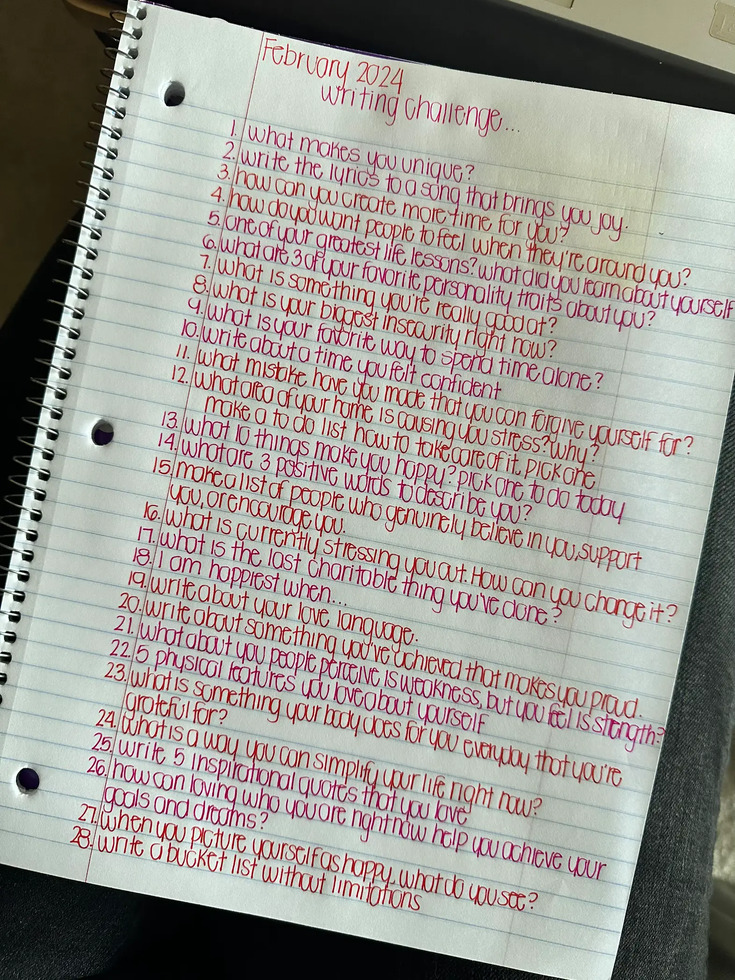 February 2024
writing challenge...
1. what makes you unique?
2. write the lyrics to a song that brings you joy.
3. how can you create more time for you?
4. how do you want people to feel when they're around you?
5. one of your greatest life lessons? what did you learn about yourself
6. what are 3 of your favorite personality traits about you?
7. what is something you're really good at?
8. what is your biggest insecurity right now?
9. what is your favorite way to spend time alone?
10. write about a time you felt confident
11. what mistake have you made that you can forgive yourself for?
12. what area of your home is causing you stress? why?
make a to do list how to take care of it. pick one
13. what 10 things make you happy? pick one to do today
14. what are 3 positive words to describe you?
15. make a list of people who genuinely believe in you, support
you, or encourage you.
16. what is currently stressing you out. How can you change it?
17. what is the last charitable thing you've done?
18. I am happiest when...
19. write about your love language.
20. write about something you've achieved that makes you proud.
21. what about you people perceive is weakness, but you feel is strength?
22. 5 physical features you love about yourself
23. what is something your body does for you everyday that you're
grateful for?
24. what is a way you can simplify your life right now?
25. write 5 inspirational quotes that you love
26. how can loving who you are right now help you achieve your
goals and dreams?
27. when you picture yourself as happy. what do you see?
28. write a bucket list without limitations